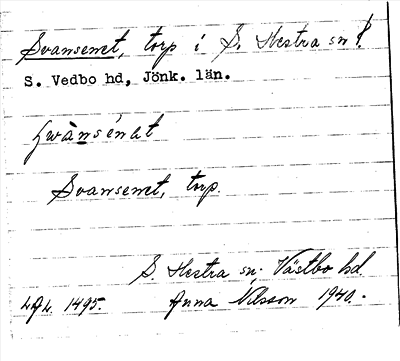 Svansenet, torp i S. Hestra sn
S. Vedbo hd, Jönk. län.
Svansenet, torp
S Hestra sn. Västbo hd
1495. Anna Nilsson 1940.